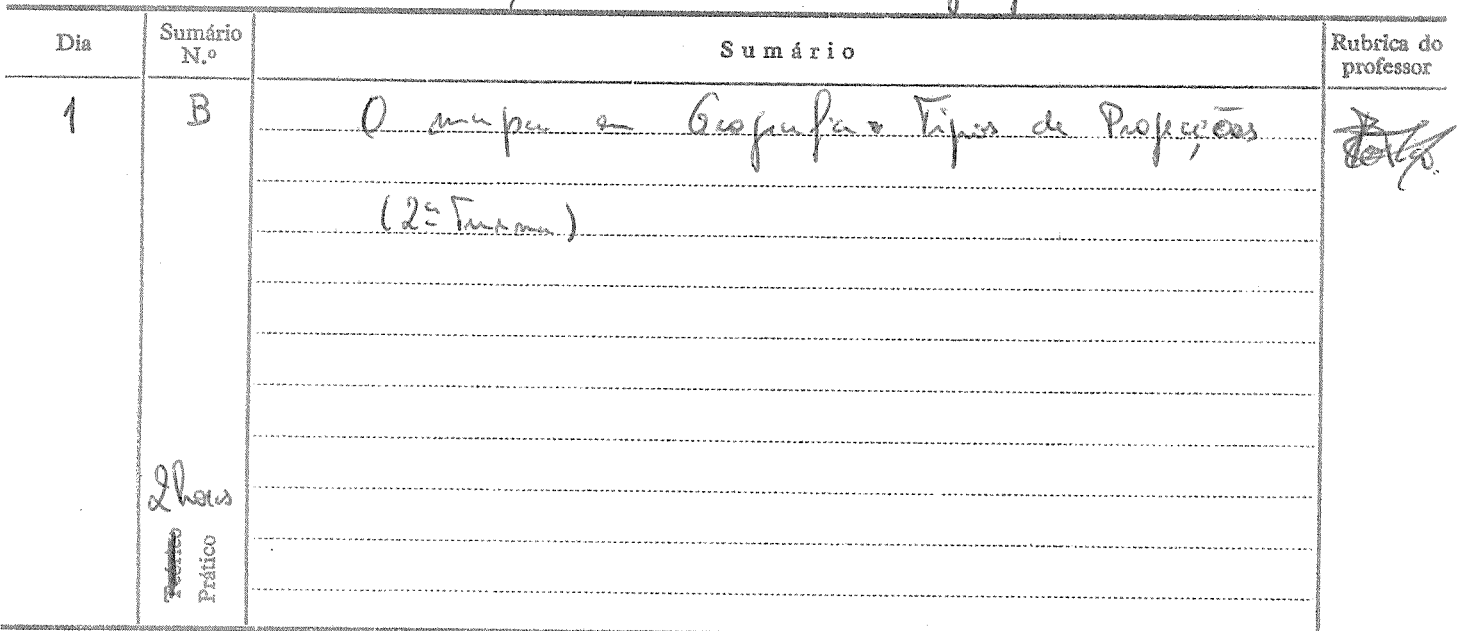 Dia Sumário N.º Sumário Rubrica do professor
1 B O mapa em Geografia. Tipos de Projecções
(2ª Turma)
2 horas
Teórico
Prático